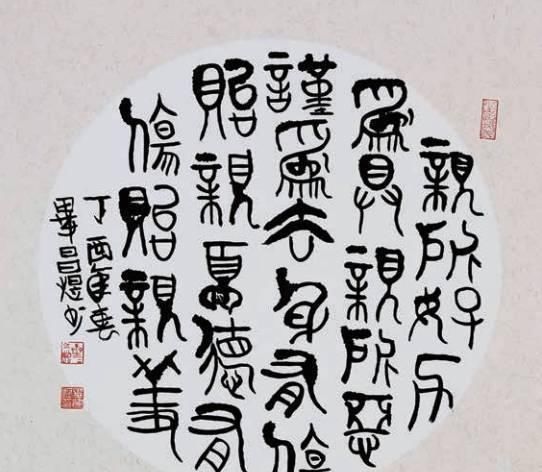 親所好力
爲具親所惡
謹爲去身有傷
貽親憂德有
傷貽親羞
丁酉年春
畢昌煜书